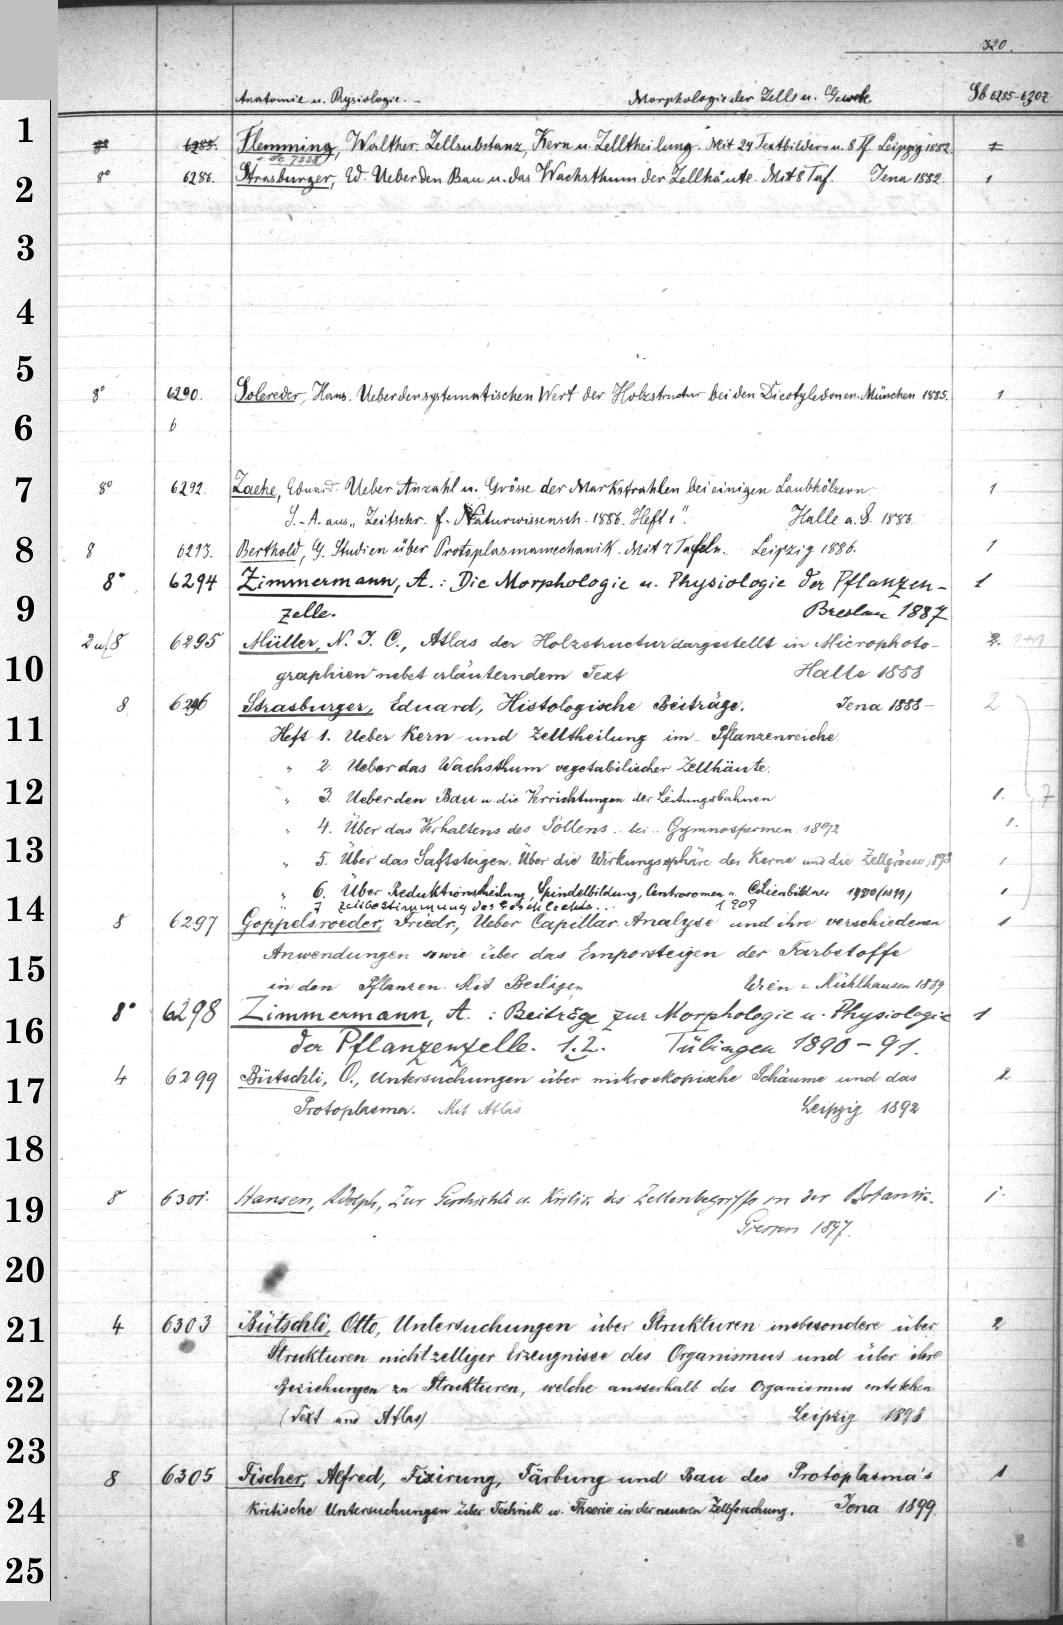 320.
Anatomie u. Physiologie. Morphologie der Zelle u. Gewebe. Sb 6285-6307
1
8° 6285. Flemming, Walther. Zellsubstanz, Kern u. Zelltheilung. Mit 24 Textbildern u. 8 Tf. Leipzig 1882. 1
2
8° 6286. Strasburger, Ed. Ueber den Bau u. das Wachsthum der Zellhäute. Mit 8 Taf. Jena 1882. 1
3
4
5
8° 6290. Solereder, Hans. Ueber den systematischen Wert der Holzstructur bei den Dicotyledonen. München 1885. 1
6
6
7
8° 6292. Zache, Eduard. Ueber Anzahl u. Grösse der Markstrahlen bei einigen Laubhölzern 1
S.-A. aus „Zeitschr. f. Naturwissensch. 1886. Heft 1". Halle a. S. 1886
8
8 6293. Berthold, G. Studien über Protoplasmamechanik. Mit 7 Tafeln. Leipzig 1886. 1
8° 6294 Zimmermann, A.: Die Morphologie u. Physiologie der Pflanzen- 1
9
zelle. Breslau 1887
2 u. 8 6295 Müller, N. J. C., Atlas der Holzstructur dargestellt in Microphoto- 2. 1+1
10
graphien nebst erläuterndem Text Halle 1888
8 6296 Strasburger, Eduard, Histologische Beiträge. Jena 1888- 2
11
Heft 1. Ueber Kern- und Zelltheilung im Pflanzenreiche
" 2. Ueber das Wachsthum vegetabilischer Zellhäute.
12
" 3. Ueber den Bau u. die Verrichtungen der Leitungsbahnen 1. 7
" 4. Über das Verhalten des Pollens .. bei .. Gymnospermen. 1892 1.
13
" 5. Über das Saftsteigen. Über die Wirkungssphäre der Kerne und die Zellgrösse, 1893 1
" 6. Über Reduktionstheilung, Spindelbildung, Centrosomen u. Cilienbildner 1900 1
14
" 7 Zeitbestimmung des Geschlechts... 1909
8 6297 Goppelsroeder, Friedr., Ueber Capillar-Analyse und ihre verschiedenen 1
Anwendungen sowie über das Emporsteigen der Farbstoffe
15
in den Pflanzen. Mit Beilagen Wien u. Mühlhausen 1889
8° 6298 Zimmermann, A. : Beiträge zur Morphologie u. Physiologie 1
16
der Pflanzenzelle. 1.2. Tübingen 1890-91.
17
4 6299 Bütschli, O., Untersuchungen über mikroskopische Schäume und das 2
Protoplasma. Mit Atlas Leipzig 1892
18
19
8 6301. Hansen, Adolph, Zur Geschichte u. Kritik des Zellenbegriffs in der Botanik. 1.
Giessen 1897.
20
21
4 6303 Bütschli, Otto, Untersuchungen über Strukturen insbesondere über 2
Strukturen nichtzelliger Erzeugnisse des Organismus und über ihre
22
Beziehungen zu Strukturen, welche ausserhalb des Organismus entstehen
(Text und Atlas) Leipzig 1898
23
8 6305 Fischer, Alfred, Fixirung, Färbung und Bau des Protoplasma's 1
24
Kritische Untersuchungen über Technik u. Theorie in der neueren Zellforschung. Jena 1899.
25